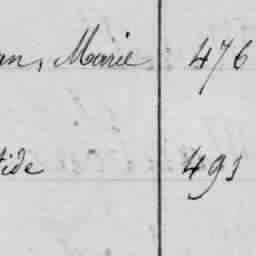 an, Marie 476
tide 493